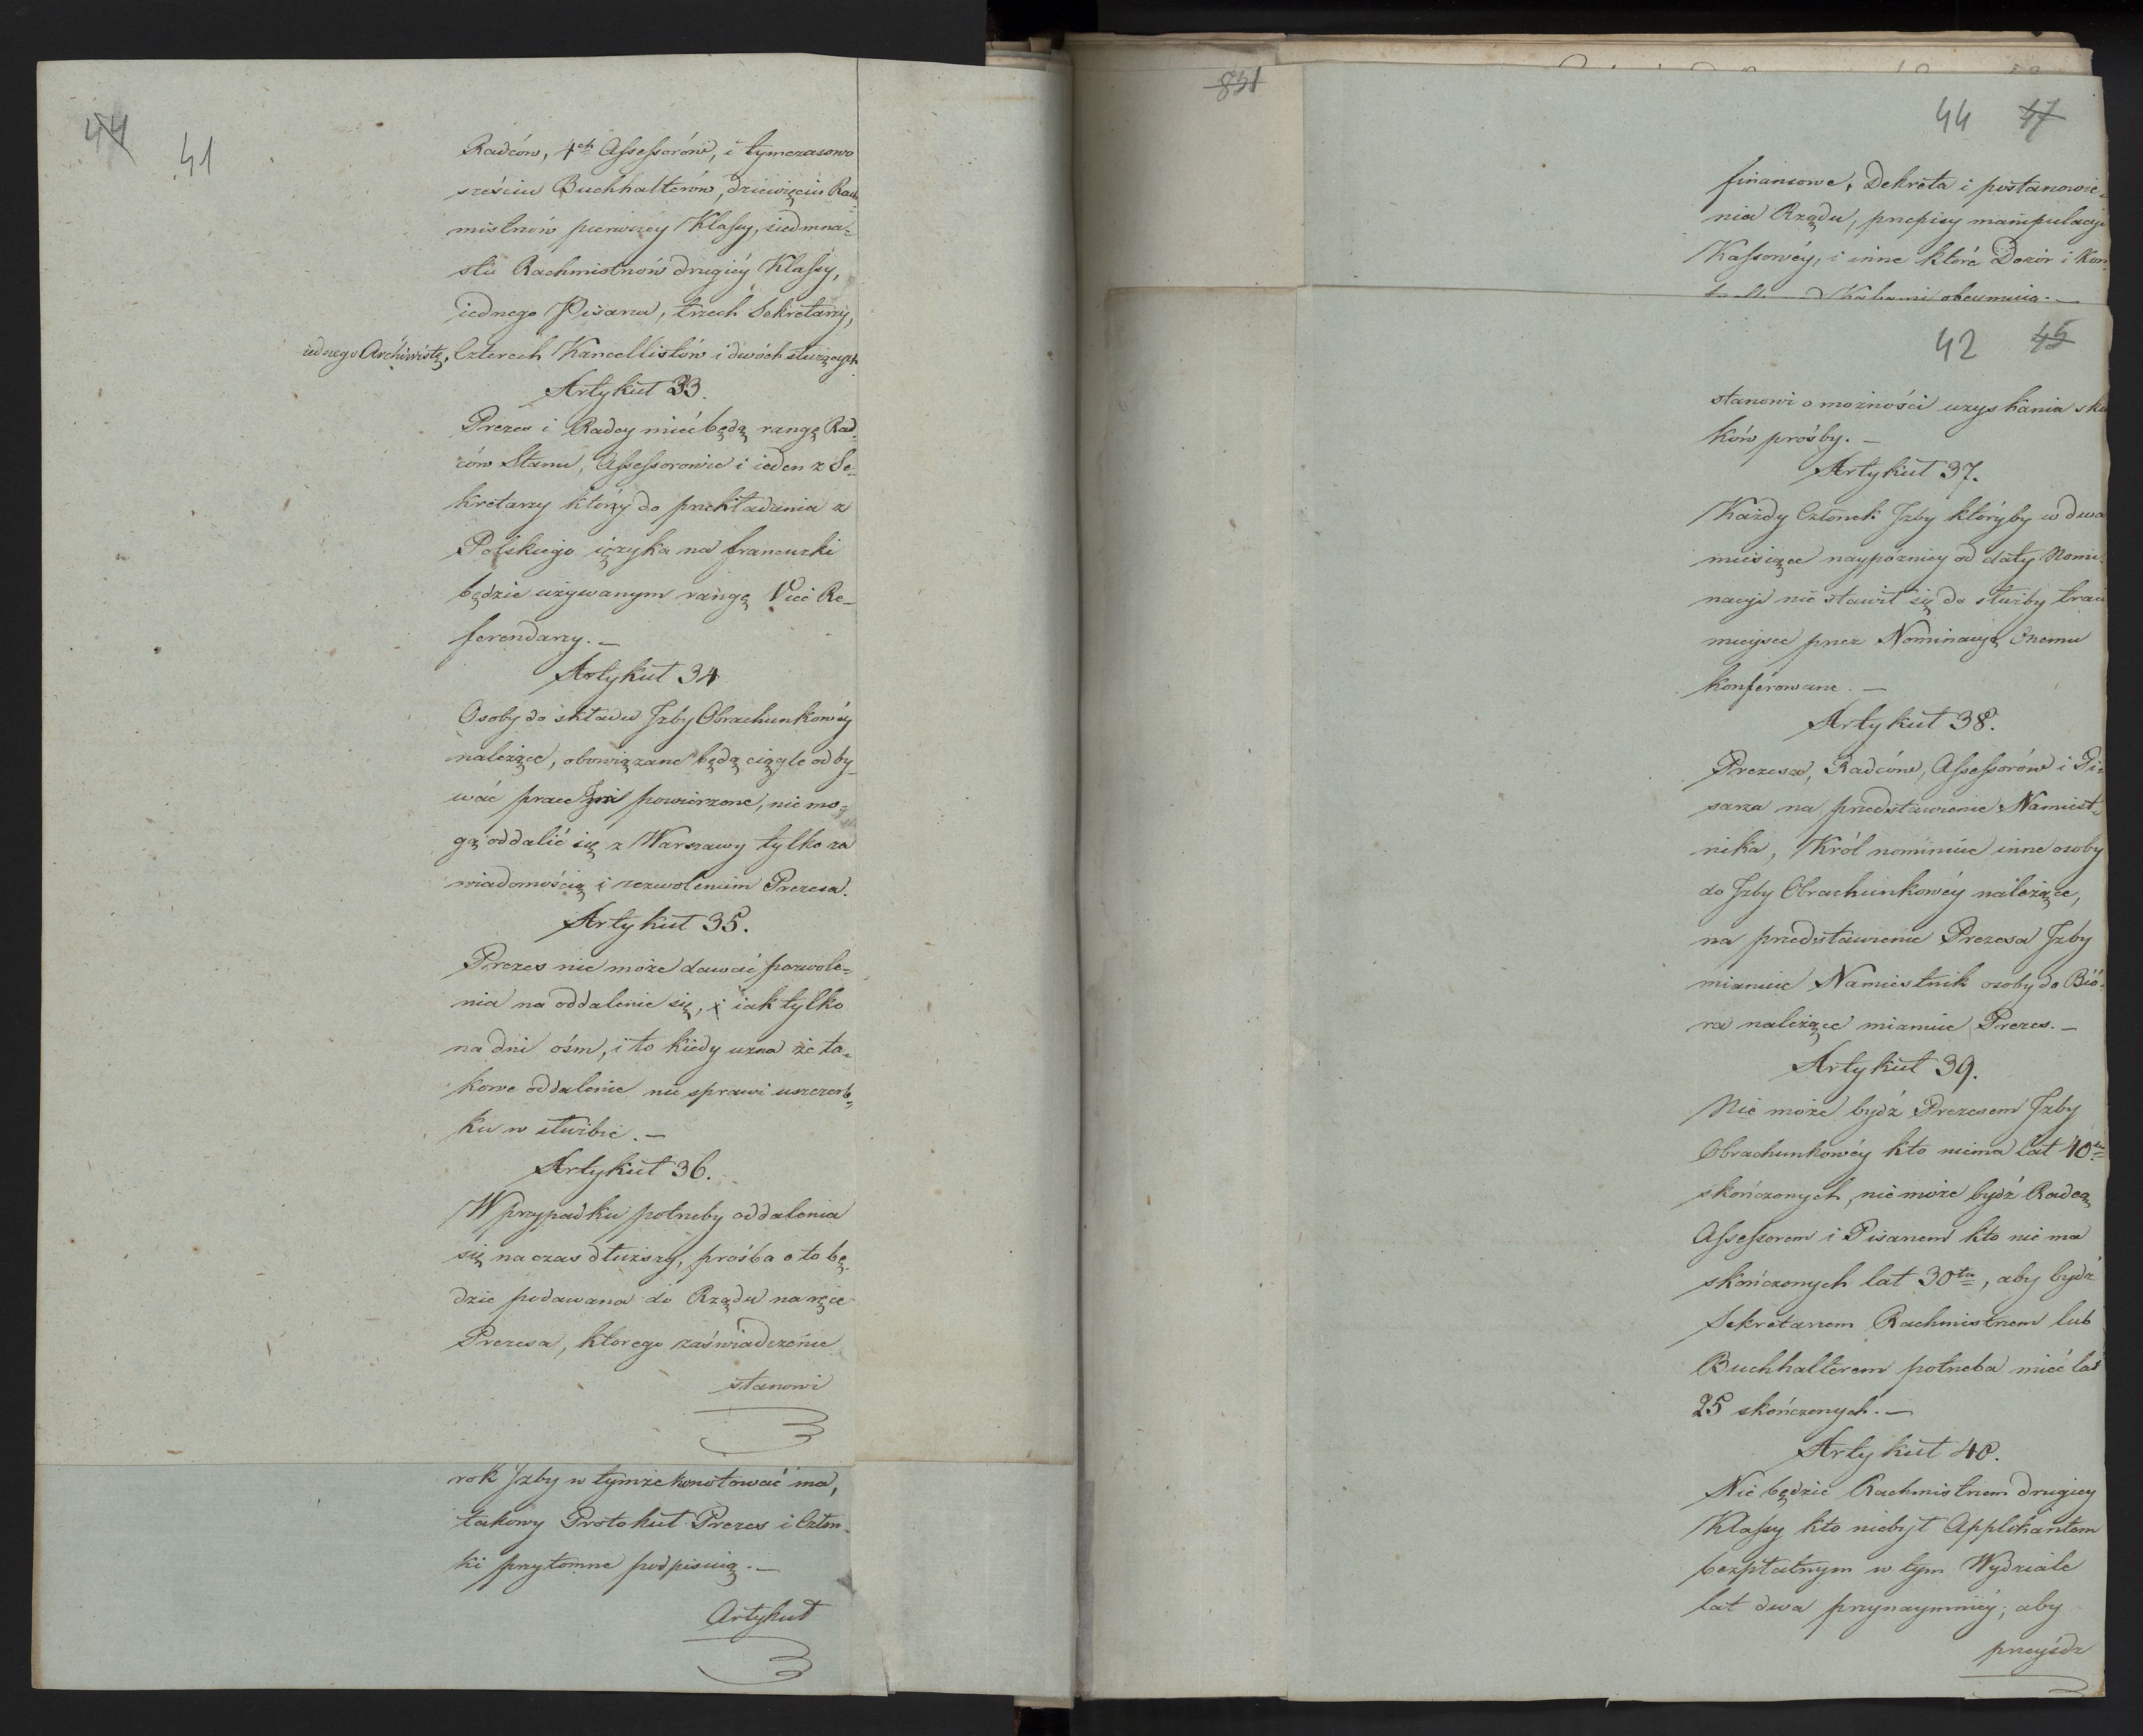 44
41
Radców, 4ch Assessorów, i tymczasowo
sześciu Buchhalterów, dziewięciu Rach-
mistrzów pierwszey Klassy, siedmna-
stu Rachmistrzów drugiéy Klassy,
iednego Pisarza, trzech Sekretarzy,
iednego Archiwistę, Czterech Kancellistów i dwóch służących
Artykuł 33.
Prezes i Radcy mieć będą rangę Rad-
ców Stanu, Assessorowie i ieden z Se-
kretarzy który do przekładania z
Polskiego ięzyka na francuzki
będzie używanym rangę Vice Re-
ferendarzy. —
Artykuł 34
Osoby do składu Izby Obrachunkowéy
należące, obowiązane będą ciągle odby-
wać prace powierzone, nie mo-
gą oddalić się z Warszawy tylko za
wiadomością i zezwoleniem Prezesa.
Artykuł 35.
Prezes nie może dawać pozwole-
nia na oddalenie się, iak tylko
na dni ośm, i to kiedy uzna że ta-
kowe oddalenie nie sprawi uszczerb-
ku w służbie. —
Artykuł 36.
W przypadku potrzeby oddalenia
się na czas dłuższy, prośba o to bę-
dzie podawana do Rządu na ręce
Prezesa, ktorego zaświadczenie
stanowi
rok Izby w tymże konotować ma,
takowy Protokuł Prezes i Człon-
ki przytomne podpisuią. —
Artykuł
851
44 47
finansowe, Dekreta i postanowie-
nia Rządu, przepisy manipulacyi
Kassowéy, i inne które Dozór i Kon-
nad Kassami obeymuią. —
42 45
stanowi o możności uzyskania sku
ków prośby. —
Artykuł 37.
Każdy Członek Izby któryby w dwa
miesiące naypóźniey od daty Nomi-
nacyi nie stawił się do służby traci
mieysce przez Nominacyę Onemu
konferowane. —
Artykuł 38.
Prezesa, Radców, Assessorów i Pi-
sarza na przedstawienie Namiest-
nika, Król nominuie inne osoby
do Izby Obrachunkowéy należące,
na przedstawienie Prezesa Izby
mianuie Namiestnik osoby do Bió-
ra należące mianuie Prezes. —
Artykuł 39.
Nie może bydź Prezesem Izby
Obrachunkowéy kto niema lat 40tu
skończonych, nie może bydź Radcą
Assessorem i Pisarzem kto nie ma
skończonych lat 30tu, aby bydź
Sekretarzem Rachmistrzem lub
Buchhalterem potrzeba mieć lat
25 skończonych. —
Artykuł 40.
Nie będzie Rachmistrzem drugiey
Klassy kto niebył Applikantem
bezpłatnym w tym Wydziale
lat dwa przynaymniéy; aby
przeyśdź